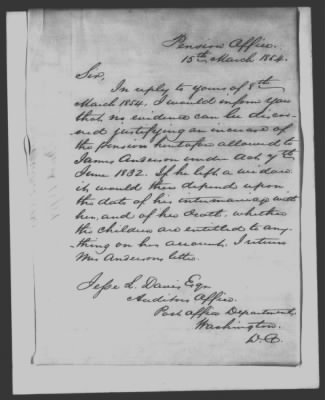 Pension Office.
15th March 1854.
Sir,
In reply to yours of 8th
March 1854, I would inform you
that no evidence can be discov-
ered justifying an increase of
the pension heretofore allowed to
James Anderson under Act 7th
June 1832. If he left a widow
it would then depend upon
the date of his intermarriage with
her, and of his death, whether
the children are entitled to any-
thing on his account. I return
Mrs Andersons letter.
Jesse L. Davis Esqr
Auditors Office.
Post office Department,
Washington.
D.C.